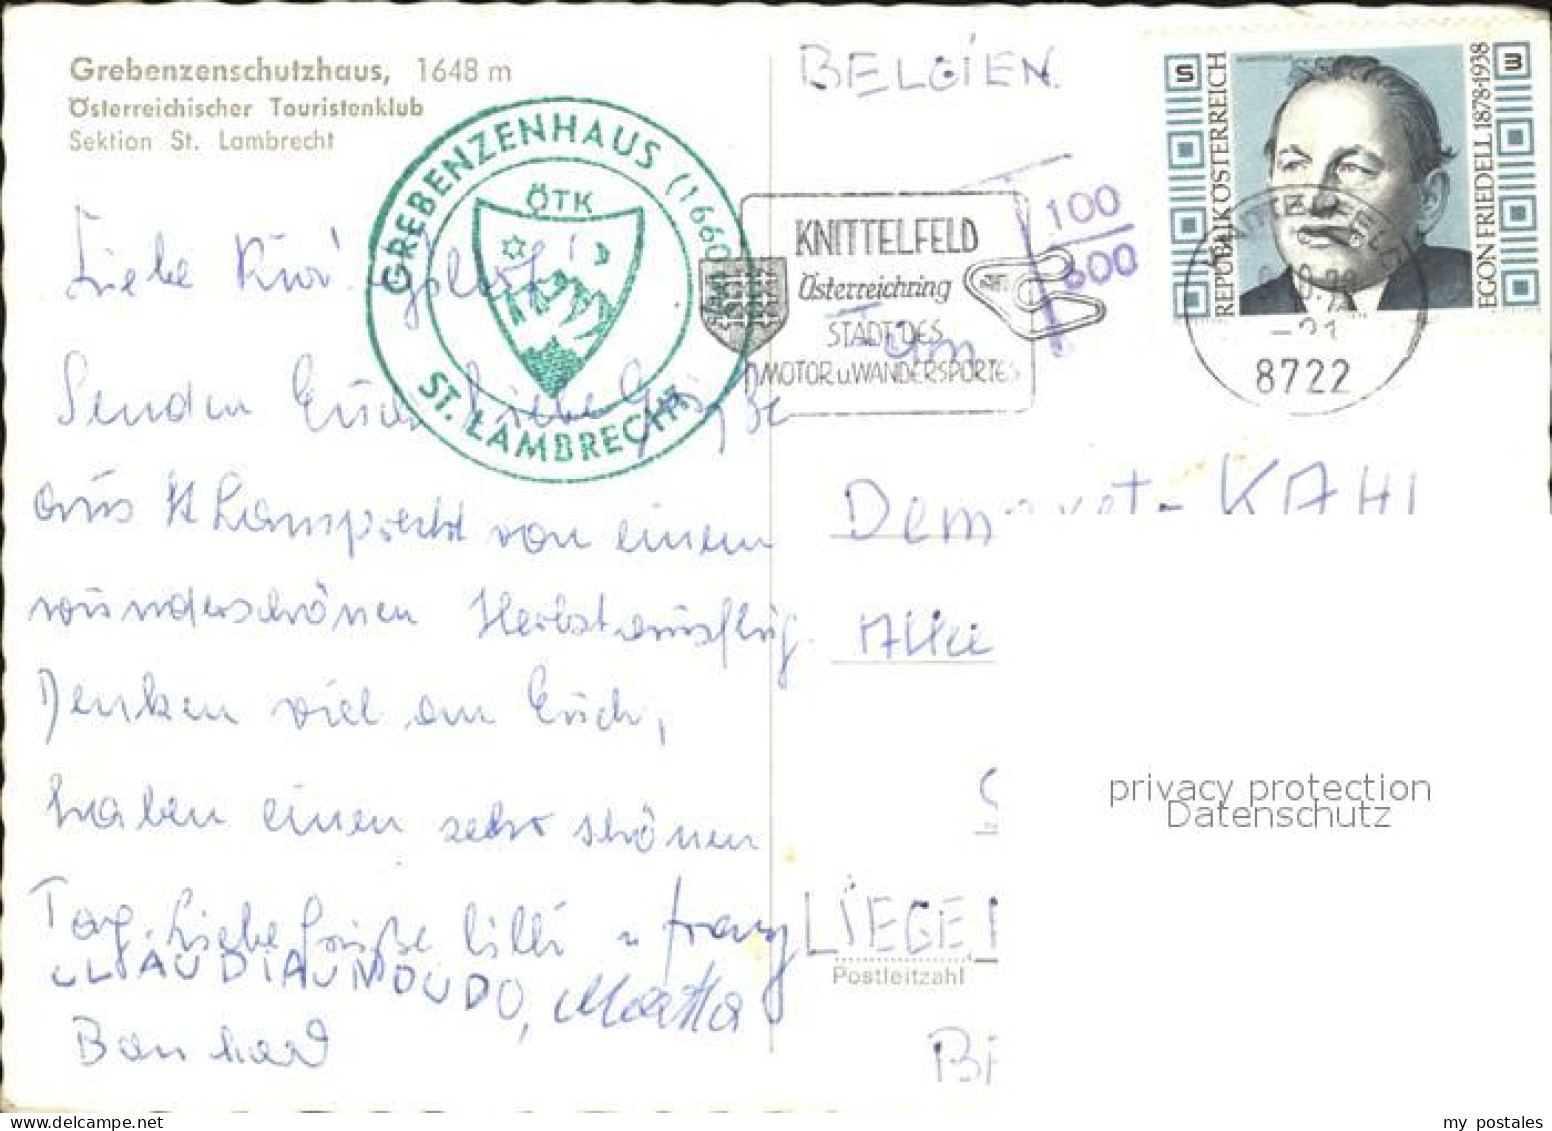 Grebenzenschutzhaus, 1648 m
Österreichischer Touristenklub
Sektion St. Lambrecht
GREBENZENHAUS (1660
ÖTK
ST. LAMBRECHT
BELGIEN.
KNITTELFELD
Österreichring
STADT DES
MOTOR u. WANDERSPORTES
100
600
S
3
REPUBLIK ÖSTERREICH
EGON FRIEDELL 1878-1938
8722
Liebe
Senden Euch Liebe Grüße
aus St Lamprecht von einem
wunderschönen Herbstausflug.
Denken viel an Euch,
haben einen sehr schönen
Tag. Liebe Grüße Lilli u Franz
CLAUDIA UND UDO, Martha
An
KAHL
LIEGE
Postleitzahl
privacy protection
Datenschutz
my postales